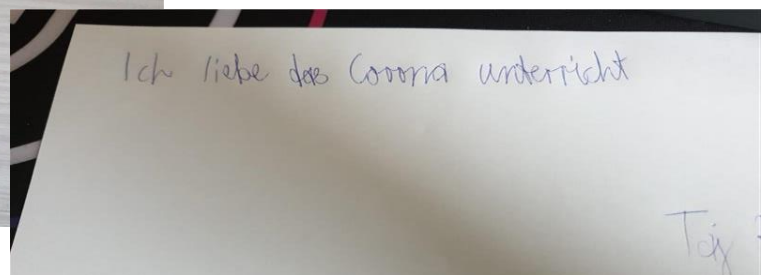 Ich liebe das Corona unterricht